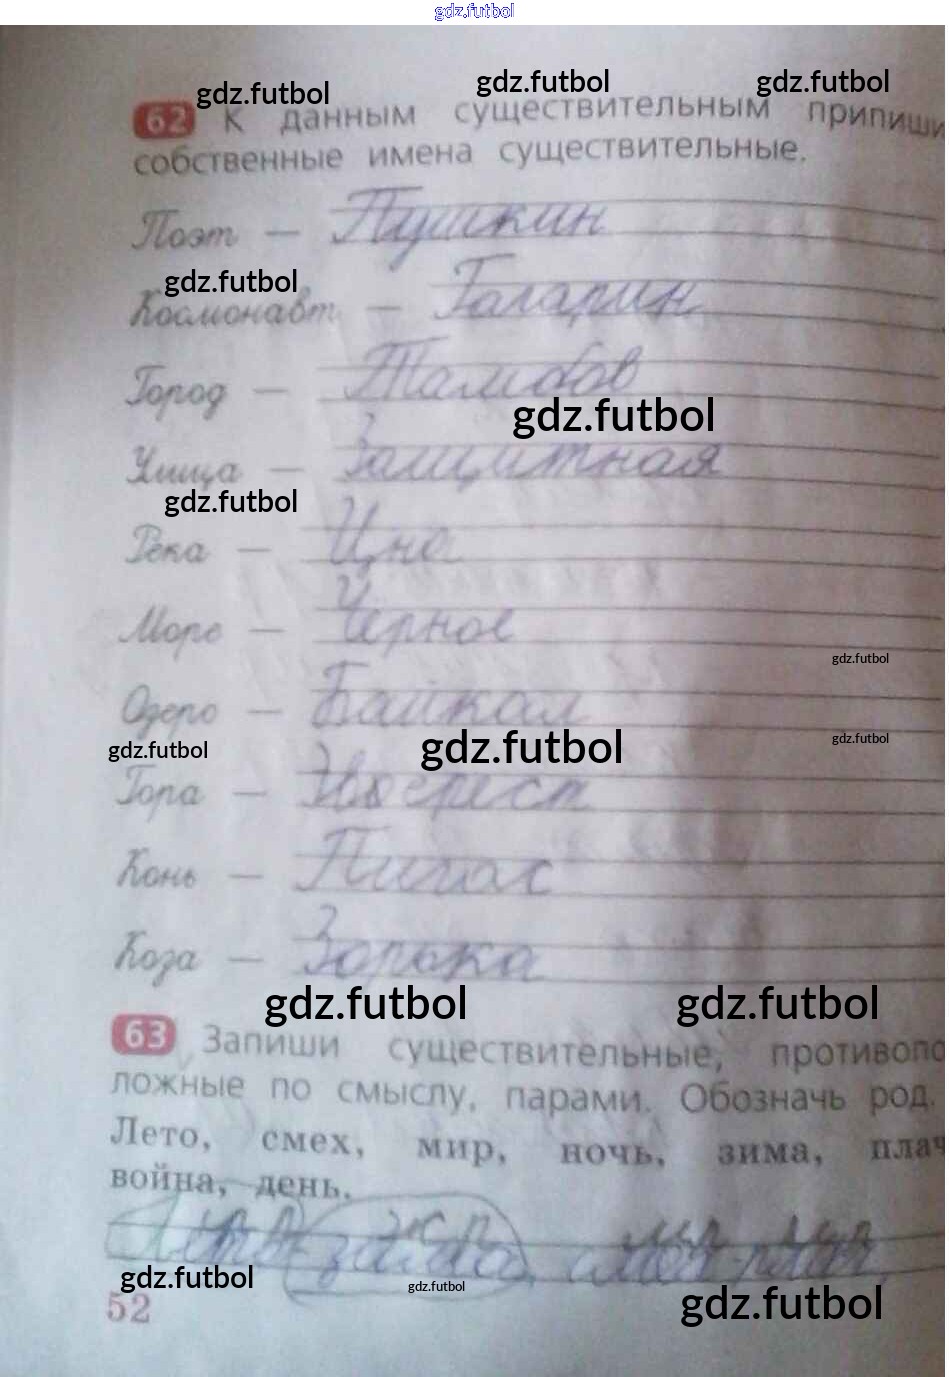 gdz.futbol
gdz.futbol gdz.futbol gdz.futbol
62 К данным существительным припиши
собственные имена существительные.
Поэт — Пушкин
gdz.futbol
Космонавт — Гагарин
Город — Тамбов
gdz.futbol
Улица — Защитная
gdz.futbol
Река — Цна
Море — Черное
gdz.futbol
Озеро — Байкал
gdz.futbol gdz.futbol gdz.futbol
Гора — Эверест
Конь — Пигас
Коза — Зорька
gdz.futbol gdz.futbol
63 Запиши существительные, противопо
ложные по смыслу, парами. Обозначь род.
Лето, смех, мир, ночь, зима, плач
война, день.
зима, смех плач,
gdz.futbol gdz.futbol gdz.futbol
52